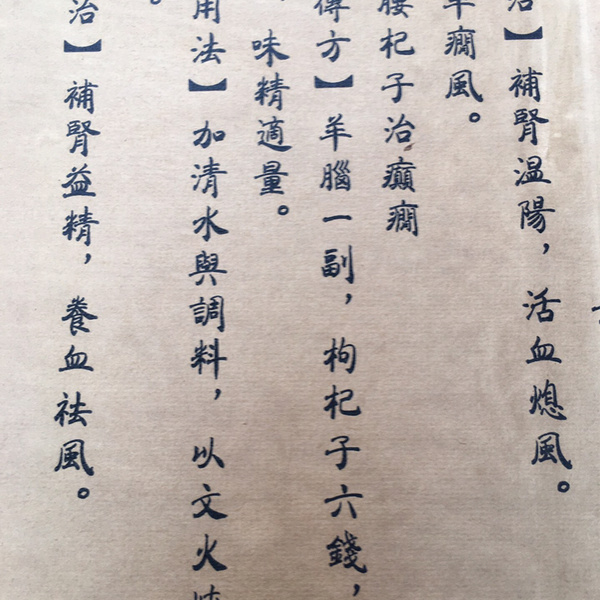 治】補腎溫陽，活血熄風。
羊癇風。
腰杞子治癲癇
傳方】羊腦一副，枸杞子六錢，
味精適量。
用法】加清水與調料，以文火
治】補腎益精，養血祛風。